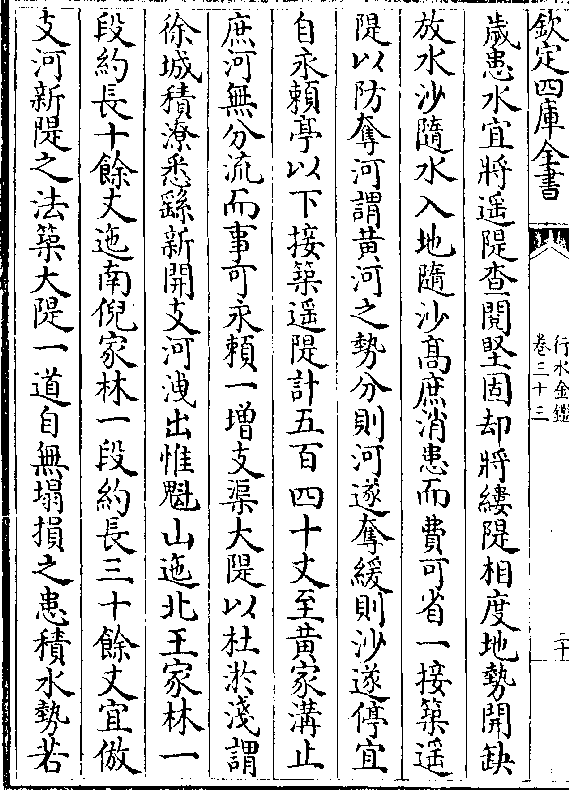 欽定四庫全書
行水金鑑
卷三十三
二十
歲患水宜將遥隄查閱堅固却將縷隄相度地勢開缺
放水沙隨水入地隨沙髙庶消患而費可省一接築遥
隄以防奪河謂黄河之勢分則河遂奪緩則沙遂停宜
自永頼亭以下接築遥隄計五百四十丈至黄家溝止
庶河無分流而事可永頼一増支渠大隄以杜淤淺謂
徐城積潦悉繇新開支河洩出惟魁山迤北王家林一
段約長十餘丈迤南倪家林一段約長三十餘丈宜倣
支河新隄之法築大隄一道自無塌損之患積水勢若